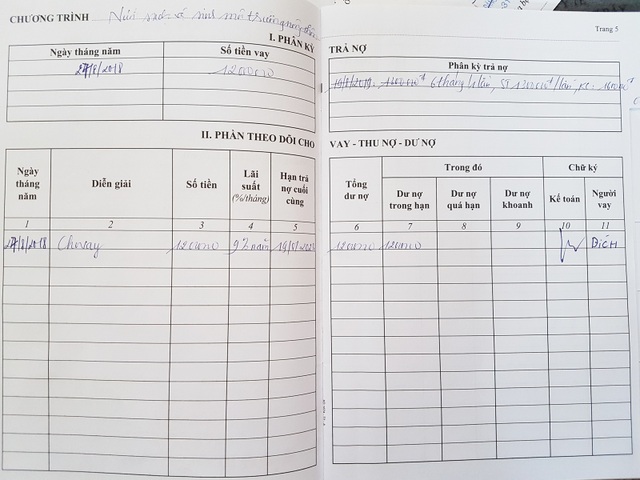 CHƯƠNG TRÌNH Nước sạch và vệ sinh môi trường nông thôn
I. PHÂN KỲ
Ngày tháng năm Số tiền vay
27/8/2018 12000000
II. PHẦN THEO DÕI CHO
Ngày tháng năm Diễn giải Số tiền Lãi suất (%/tháng) Hạn trả nợ cuối cùng
1 2 3 4 5
27/8/2018 Cho vay 12000000 9% năm
Trang 5
TRẢ NỢ
Phân kỳ trả nợ
6 tháng/1 lần
VAY - THU NỢ - DƯ NỢ
Tổng dư nợ Trong đó Chữ ký
Dư nợ trong hạn Dư nợ quá hạn Dư nợ khoanh Kế toán Người vay
6 7 8 9 10 11
12000000 12000000 ĐÍCH